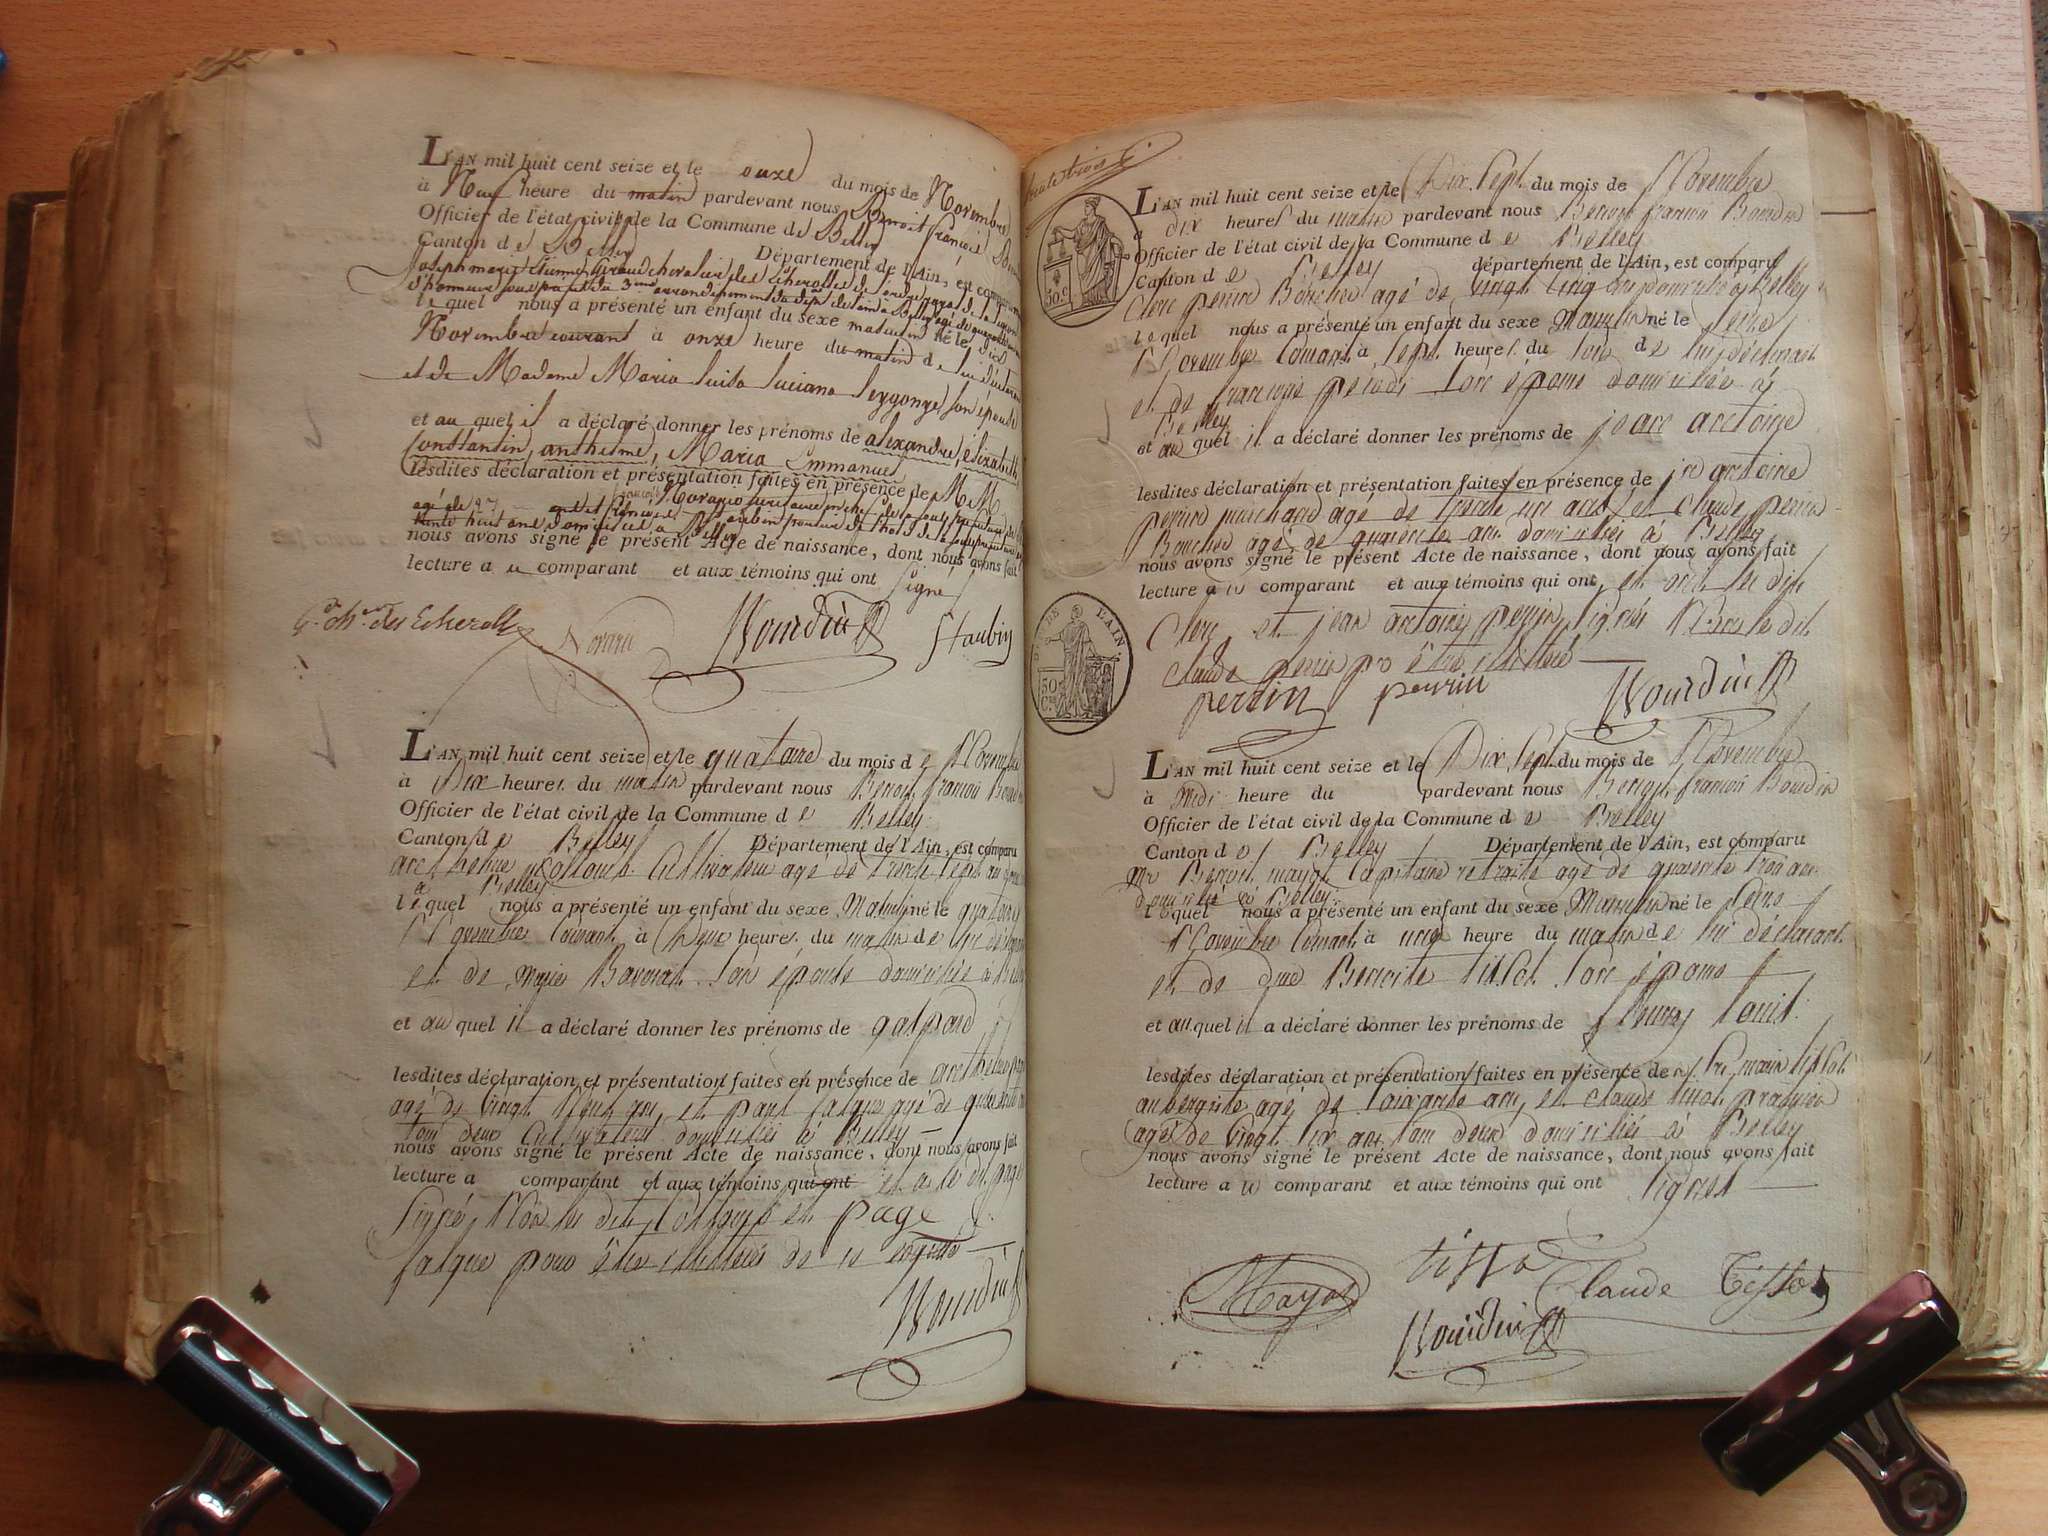 L'AN mil huit cent seize et le onze du mois de Novembre
à Neuf heure du matin pardevant nous Benoit françois
Officier de l'état civil de la Commune de Belley
Canton de Belley Département de l'Ain, est comparu
Joseph marie Etienne giraud chevalier des Echerolles de l'ordre royal de la
d'honneur sous préfet du 3eme arrondissement du dépt de l'ain à Belley agé de
lequel nous a présenté un enfant du sexe masculin né le dix
Novembre courant à onze heure du matin de lui déclarant
et de Madame Maria luisa luciana son épouse
et au quel il a déclaré donner les prénoms de alexandre, élizabeth
Constantin, anthelme, Maria Emmanuel
lesdites déclaration et présentation faites en présence de M M
agé de 27
trente huit ans domiciliés à Belley
nous avons signé le présent Acte de naissance, dont nous avons fait
lecture au comparant et aux témoins qui ont signé
Gd. chr. des Echerolles
Bourdin
St aubin
L'AN mil huit cent seize et le quatorze du mois de Novembre
à Dix heures du matin pardevant nous Benoit françois Bourdin
Officier de l'état civil de la Commune de Belley
Canton de Belley Département de l'Ain, est comparu
anthelme Cultivateur agé de trente sept ans
à Belley
lequel nous a présenté un enfant du sexe Masculin né le quatorze
Novembre Courant à Deux heures du matin de lui déclarant
et de Marie son épouse domiciliés à Belley
et au quel il a déclaré donner les prénoms de gaspard
lesdites déclaration et présentation faites en présence de anthelme page
agé de vingt neuf ans, et falque agé de
tous deux Cultivateurs domiciliés à Belley
nous avons signé le présent Acte de naissance, dont nous avons fait
lecture a comparant et aux témoins qui ont et a le dt. page
signé, Non les dits et page
falque pour être illitérés de ce enquis
Bourdin
50.C
L'AN mil huit cent seize et le Dix Sept du mois de Novembre
à dix heures du matin pardevant nous Benoit françois Bourdin
Officier de l'état civil de la Commune de Belley
Canton de Belley département de l'Ain, est comparu
Clerc perrin Boucher agé de vingt cinq ans domicilié à Belley
lequel nous a présenté un enfant du sexe Masculin né le seize
Novembre Courant à sept heures du soir de lui déclarant
et de françoise son épouse domiciliée à
Belley
et au quel il a déclaré donner les prénoms de jean antoine
lesdites déclaration et présentation faites en présence de jn antoine
perrin marchand agé de trente un ans, et claude perrin
Boucher agé de quarente ans domiciliés à Belley
nous avons signé le présent Acte de naissance, dont nous avons fait
lecture au comparant et aux témoins qui ont, et ont les dits
Clerc et jean antoine perrin, signés Non le dit
claude perrin pr être illitéré
perrin perrin Bourdin
AIN.
50 C.
L'AN mil huit cent seize et le Dix Sept du mois de Novembre
à Midi heure du pardevant nous Benoit françois Bourdin
Officier de l'état civil de la Commune de Belley
Canton de Belley Département de l'Ain, est comparu
Mr Benoit mayot Capitaine retraité agé de quarente trois ans
domicilié à Belley
lequel nous a présenté un enfant du sexe Masculin né le seize
Novembre Courant à une heure du matin de lui déclarant
et de dme Benoite tissot son épouse
et au quel il a déclaré donner les prénoms de fleury louis
lesdites déclaration et présentation faites en présence de tissot
aubergiste agé de soixante ans, et claude tissot praticien
agé de vingt six ans tous deux domiciliés à Belley
nous avons signé le présent Acte de naissance, dont nous avons fait
lecture au comparant et aux témoins qui ont signés
Mayot tissot Claude Tissot
Bourdin